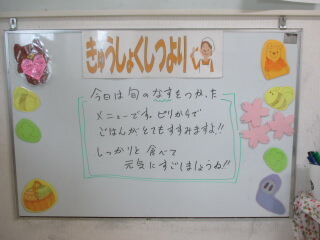 きゅうしょくしつより
今日は旬のなすをつかった
メニューです。ピリからで
ごはんがとてもすすみますよ!!
しっかりと食べて
元気にすごしましょうね!!